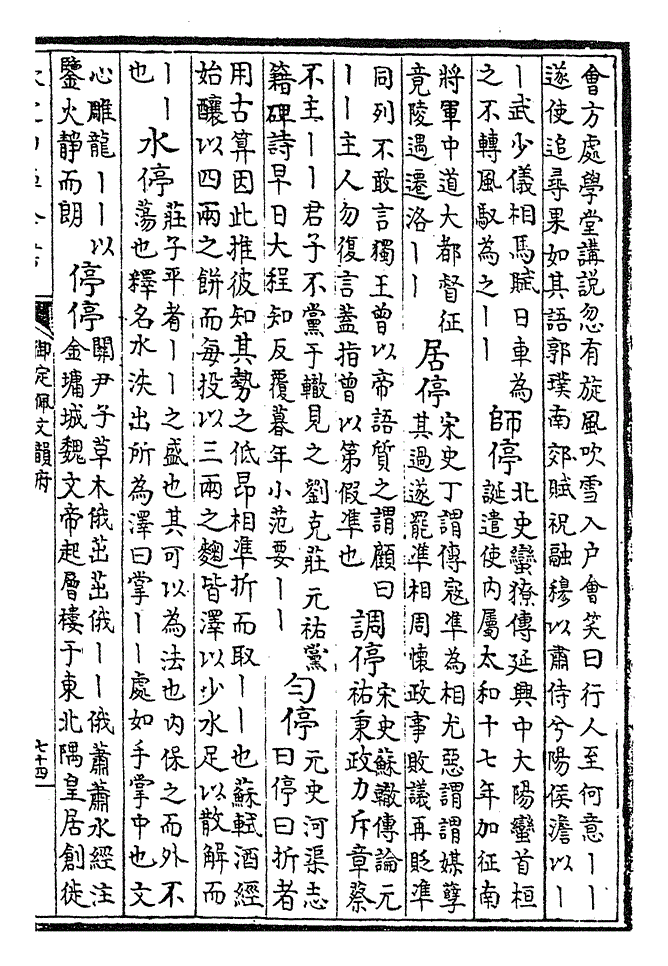 會方處學堂講說忽有旋風吹雪入户會笑曰行人至何意丨丨
遂使追尋果如其語郭璞南郊賦祝融穆以肅侍兮陽侯澹以丨
丨武少儀相馬賦日車為
之不轉風馭為之丨丨
師停
北史蠻獠傳延興中大陽蠻首桓
誕遣使内屬太和十七年加征南
將軍中道大都督征
竟陵遇遷洛丨丨
居停
宋史丁謂傳寇準為相尤惡謂謂媒孽
其過遂罷準相周懷政事敗議再貶準
同列不敢言獨王曾以帝語質之謂顧曰
丨丨主人勿復言蓋指曾以第假準也
調停
宋史蘇轍傳論元
祐秉政力斥章蔡
不主丨丨君子不黨于轍見之劉克莊元祐黨
籍碑詩早日大程知反覆暮年小范要丨丨
勻停
元史河渠志
曰停曰折者
用古算因此推彼知其勢之低昂相準折而取丨丨也蘇軾酒經
始釀以四兩之餅而每投以三兩之麴皆澤以少水足以散解而
丨丨
也
水停
莊子平者丨丨之盛也其可以為法也内保之而外不
蕩也釋名水泆出所為澤曰掌丨丨處如手掌中也文
心雕龍丨丨以
鑒火静而朗
停停
關尹子草木俄茁茁俄丨丨俄蕭蕭水經注
金墉城魏文帝起層樓于東北隅皇居創徙
御定佩文韻府
七十四